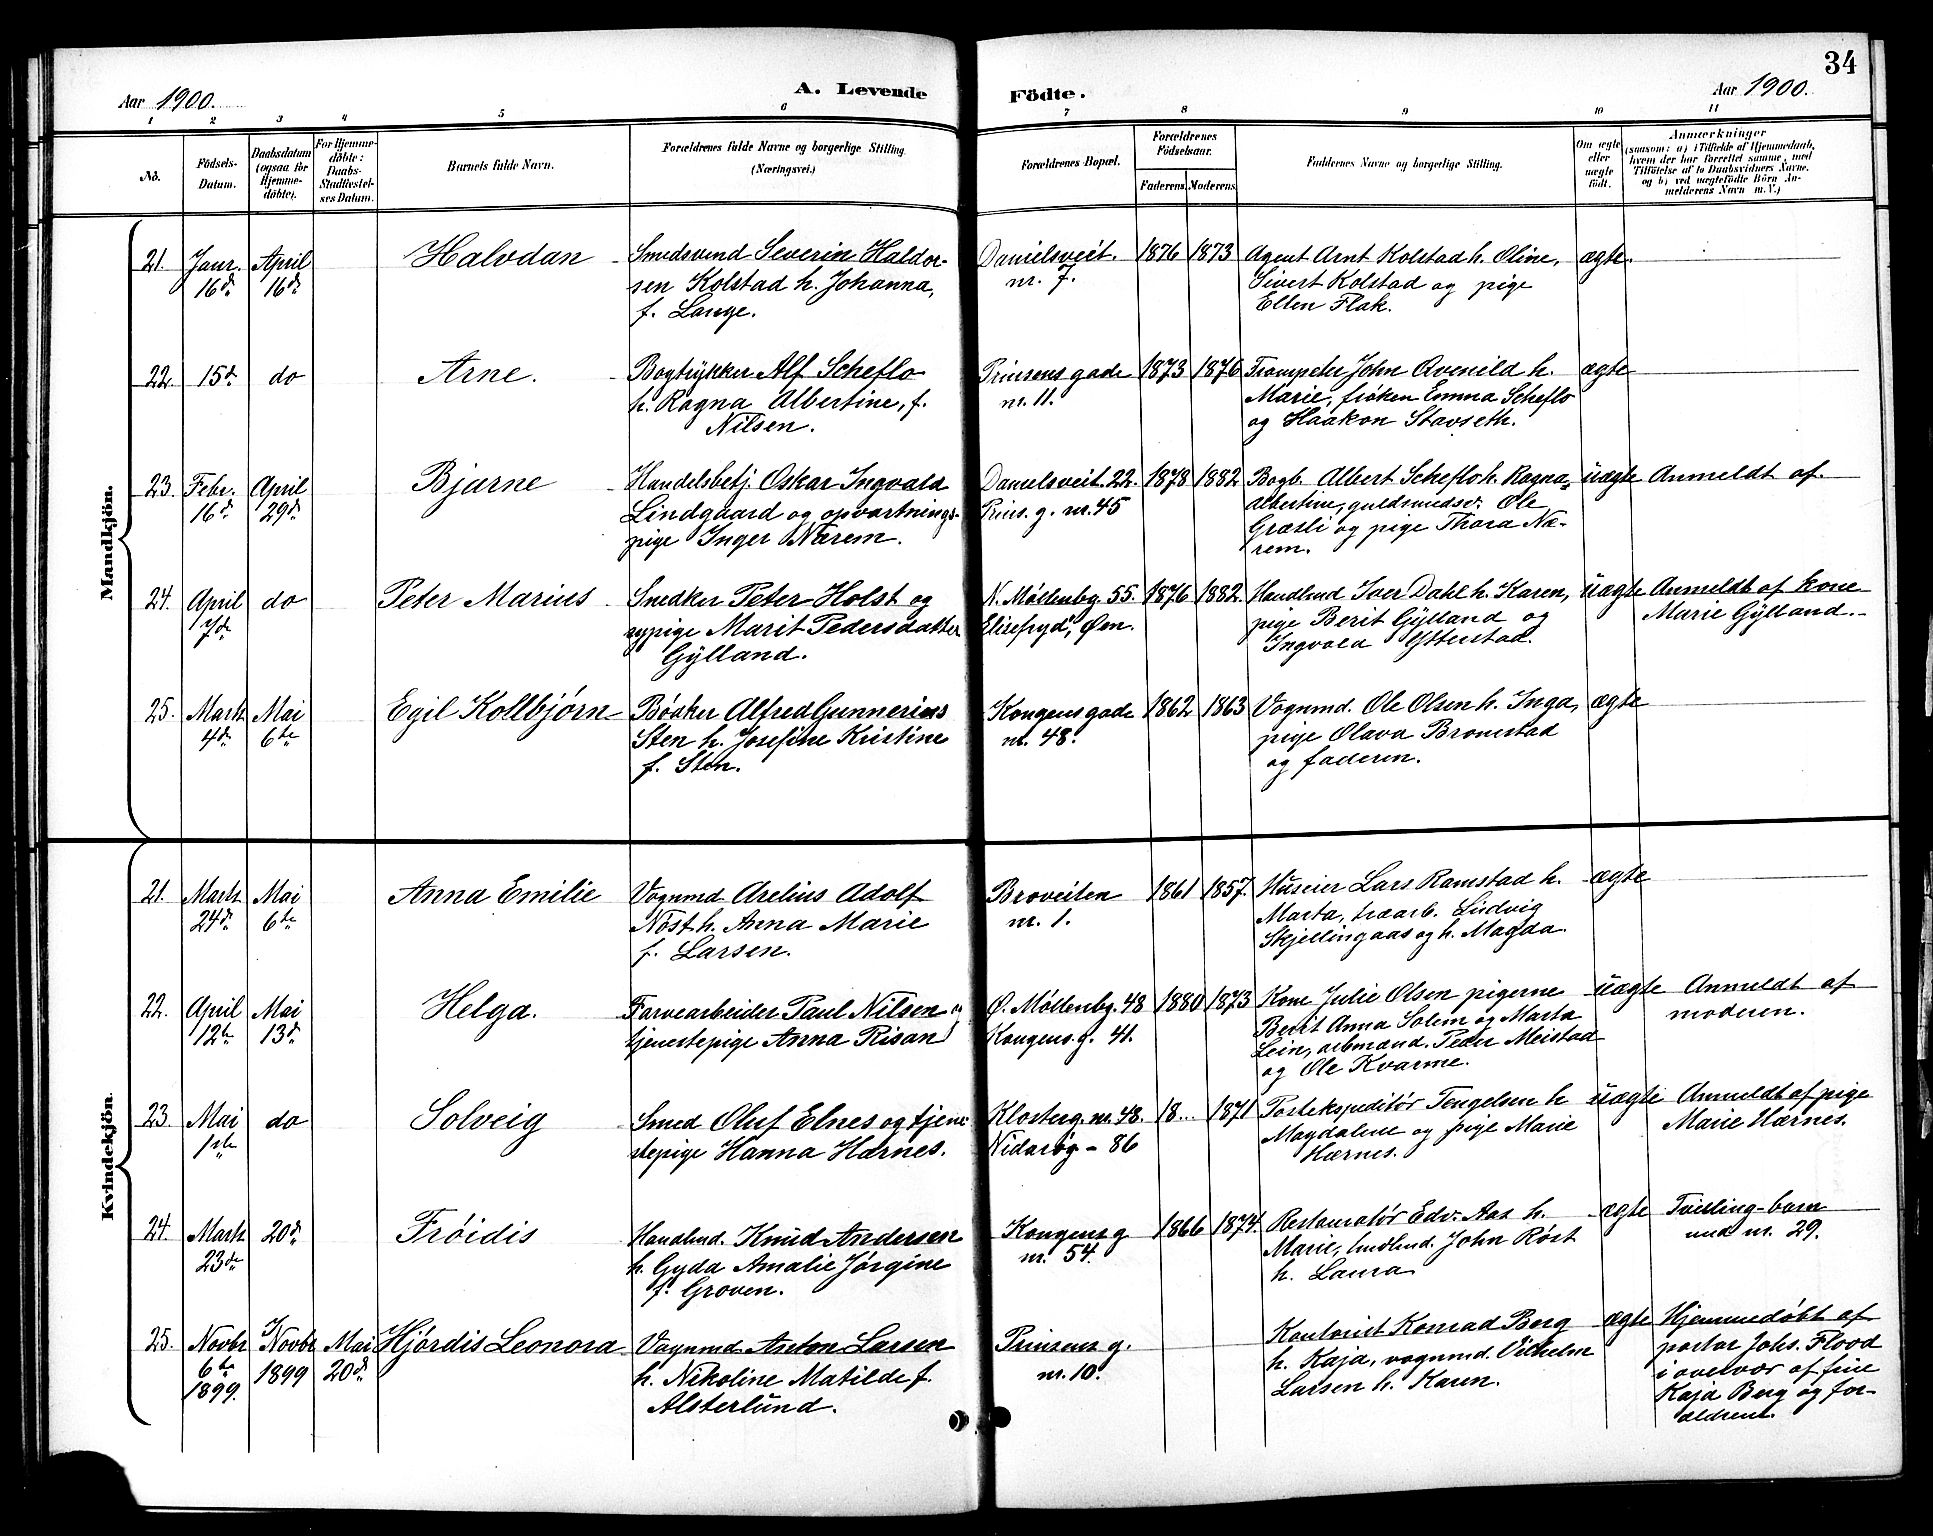 34
Aar 1900.
A. Levende Födte.
Aar 1900.
1 2 3 4 5 6 7 8 9 10 11
No.
Födsels-
Datum.
Daabsdatum
(ogsaa for
Hjemme-
döbte).
For Hjemme-
döbte:
Daabs-
Stadfæstel-
ses Datum.
Barnets fulde Navn.
Forældrenes fulde Navne og borgerlige Stilling.
(Næringsvei.)
Forældrenes Bopæl.
Forældrenes
Födselsaar.
Faderens.
Moderens.
Faddernes Navne og borgerlige Stilling.
Om ægte
eller
uægte
födt.
Anmærkninger
(saasom: a) i Tilfælde af Hjemmedaab,
hvem der har forrettet samme, med
Tilföielse af to Daabsvidners Navne,
og b) ved uægtefödte Börn An-
melderens Navn m. V.)
Mandkjön.
21. Janr. 16de
April 16de
Halvdan
Smedsvend Severin Haldor-
sen Kolstad h. Johanna,
f. Lange.
Danielsveit.
nr. 7.
1876 1873
Agent Arnt Kolstad h. Oline,
Sivert Kolstad og pige
Ellen Flak.
ægte.
22. 15de do
Arne.
Bogtrykker Alf Scheflo
h. Ragna Albertine, f.
Nilsen.
Prinsens gade
nr. 11.
1873 1876
Trompeter John Qvenild h.
Marie, frøken Emma Scheflo
og Haakon Stavseth.
ægte
23. Febr. 16de
April 29de
Bjarne
Handelsbetj. Oskar Ingvald
Lindgaard og opvartnings-
pige Inger Nærem.
Danielsveit. 22.
Prins. g. nr. 45
1878 1882
Bogb. Albert Scheflo h. Ragna
Albertine, guldsmedsv. Ole
Græsli og pige Thora Næ-
rem.
uægte
Anmeldt af.
24. April 7de do
Peter Marius
Snedker Peter Holst og
sypige Marit Pedersdatter
Gylland.
N. Møllenbg. 55.
Elisefryd, Øen.
1876 1882.
Handlmd Iver Dahl h. Karen,
pige Berit Gylland og
Ingvald Ytterstad.
uægte
Anmeldt af kone
Marie Gylland.
25. Marts 4de
Mai 6te
Egil Kollbjørn
Bødker Alfred Gunnerius
Sten h. Josefine Kristine
f. Sten.
Kongens gade
nr. 48.
1862 1863
Vognmd. Ole Olsen h. Inga,
pige Olava Bromstad
og faderen.
ægte
Kvindekjön.
21. Marts 24de
Mai 6te
Anna Emilie
Vognmd Arelius Adolf
Nøst h. Anna Marie
f. Larsen.
Broveiten
nr. 1.
1861 1857.
Huseier Lars Ramstad h.
Marta, træarb. Ludvig
Skjellingaas og h. Magda.
ægte
22. April 12te
Mai 13de
Helga.
Farvearbeider Paul Nilsen og
tjenestepige Anna Risan
Ø. Møllenbg. 48
Kongens g. 41.
1880 1873
Kone Julie Olsen pigerne
Berit Anna Solem og Marta
Lein, arbmænd. Peder Meistad
og Ole Kvarme.
uægte
Anmeldt af
moderen.
23. Mai 1ste do
Solveig
Smed Oluf Elnes og tjene-
stepige Hanna Hærnes.
Klosterg. nr. 48.
Nidarøg - 86
18... 1871
Postekspeditør Tengelsen h
Magdalene og pige Marie
Hærnes.
uægte
Anmeldt af pige
Marie Hærnes.
24. Marts 23de
20de
Frøidis
Handlmd. Knud Andersen
h. Gyda Amalie Jørgine
f. Groven.
Kongens g
nr. 54.
1866 1874.
Restauratør Edv. Aas h.
Marie, hndlmd. John Røst
h. Laura
ægte
Tvilling-barn
med nr. 29.
25. Novbr 6te 1899.
Novbr 1899
Mai 20de
Hjørdis Leonora
Vognmd Anton Larsen
h. Nikoline Matilde f.
Alsterlund.
Prinsens g.
nr. 10.
Kontorist Konrad Berg
h. Kaja, vognmd. Vilhelm
Larsen h. Karen.
ægte
Hjemmedøbt af
pastor Johs. Flood
i overvær af frue
Kaja Berg og for-
ældrene.